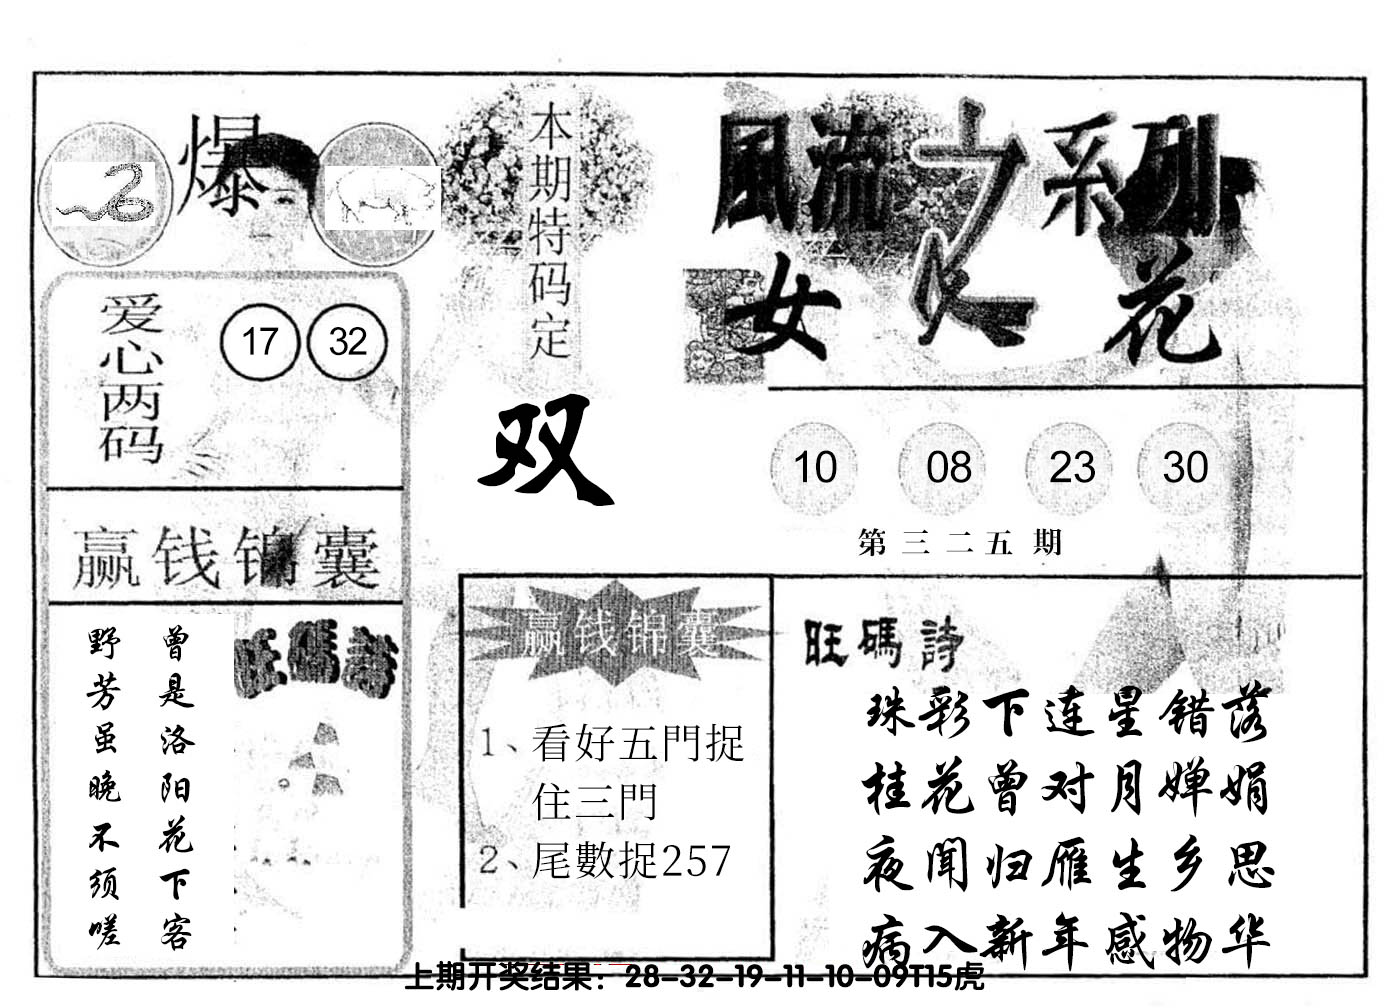 爆
本期特码定
双
風流之系列
女人花
爱心两码
17 32
10 08 23 30
第三二五期
赢钱锦囊
旺碼詩
曾是洛阳花下客
野芳虽晚不须嗟
赢钱锦囊
1、看好五門捉
住三門
2、尾數捉257
旺碼詩
珠彩下连星错落
桂花曾对月婵娟
夜闻归雁生乡思
病入新年感物华
上期开奖结果：28-32-19-11-10-09T15虎